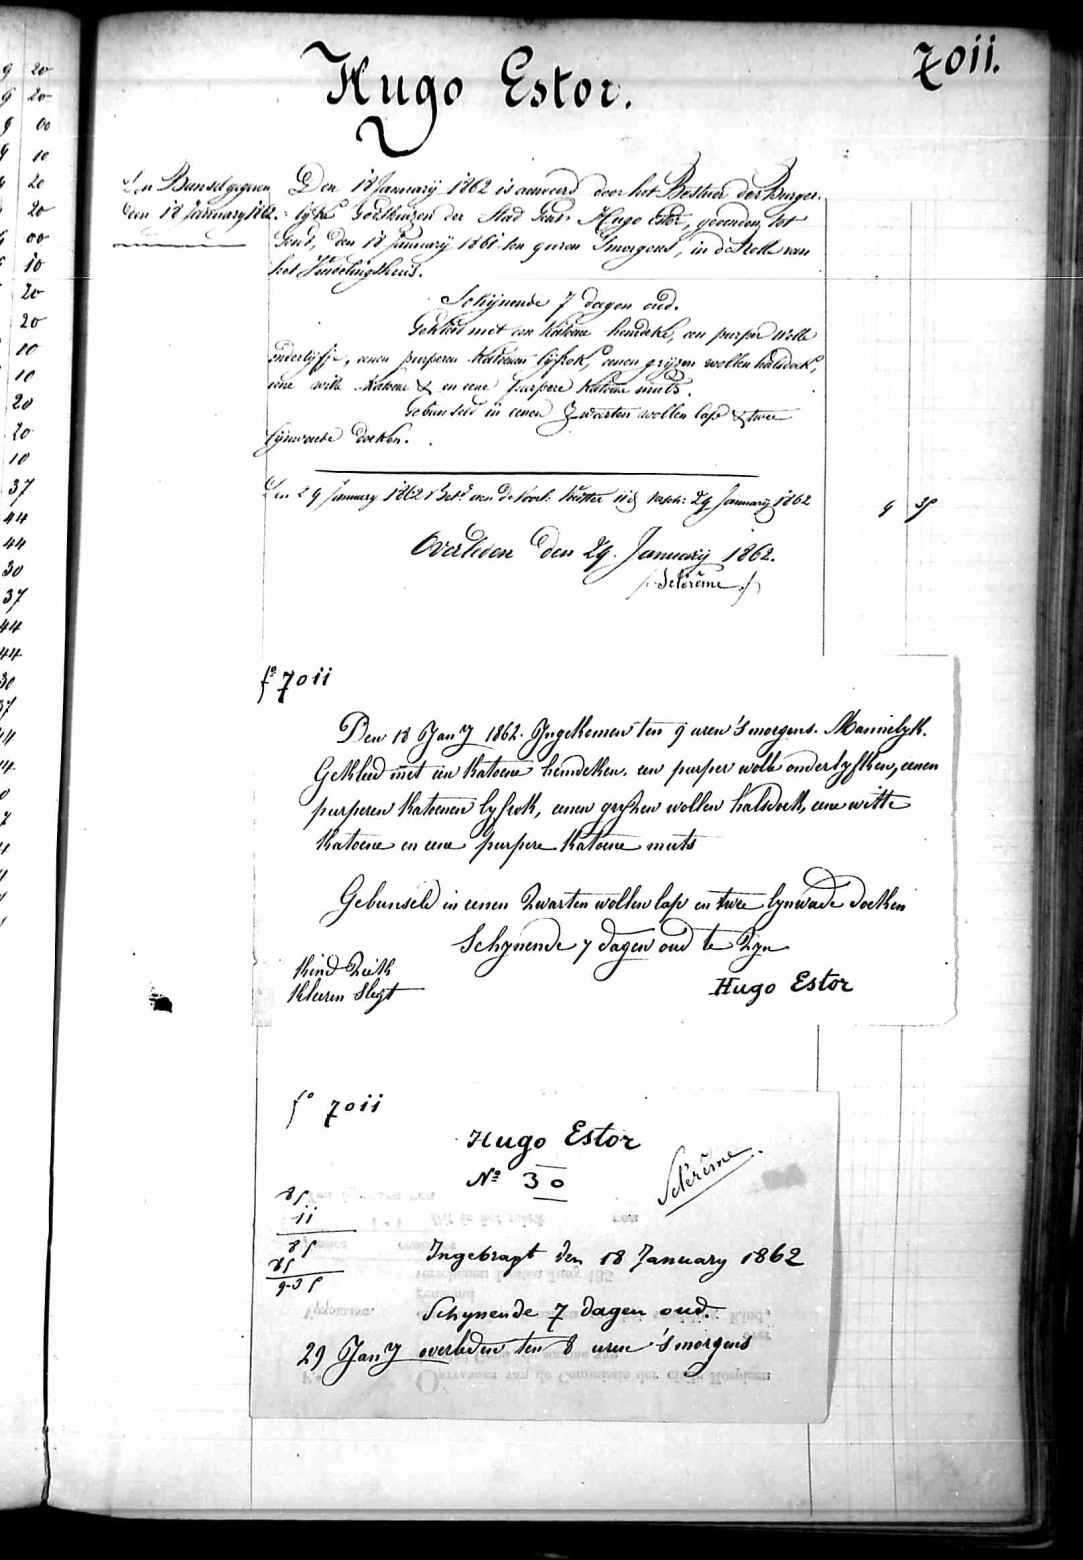 7011.
Hugo Estor.
Den Bunsel gegeven
den 18 January 1862.
Den 18 Januarÿ 1862 is aenveerd door het Bestuer der Burger-
lÿke Godshuizen der Stad Gent, Hugo Estor, gevonden tot
Gent, den 18 Januarÿ 1861 ten 9 uren 's morgens, in de Rolle van
het Vindelingshuis.
Schÿnende 7 dagen oud.
Gekleed met een katoene hemdeke, een purper wolle
onderlÿfje, eenen purperen katoenen lÿfrok, eenen grÿzen wollen halsdoek,
eene witte katoene & en eene purpere katoene muts.
Gebunseld in eenen zwarten wollen lap & twee
lÿnwaede doeken.
Den 29 January 1862 Bet.d aen de Voed: 11 d 29 Januarÿ 1862
9 35
Overleden den 29. Januarÿ 1862.
/: Selérême :/
f° 7011
Den 18 Jan.y 1862. Ingekomen ten 9 uren 's morgens. Mannelyk.
Gekleed met een katoene hemdeken, een purper wolle onderlyfken, eenen
purperen katoenen lyfrok, eenen gryzen wollen halsdoek, eene witte
katoene en eene purpere katoene muts
Gebunseld in eenen zwarten wollen lap en twee lynwade doeken
Schynende 7 dagen oud te zyn
Kind Ziek
Kleeren Slegt
Hugo Estor
f° 7011
Hugo Estor
N° 30
Selérême.
85
11
85
85
9-35
Ingebragt den 18 January 1862
Schynende 7 dagen oud.
29 Jan.y overleden ten 8 uren 's morgens